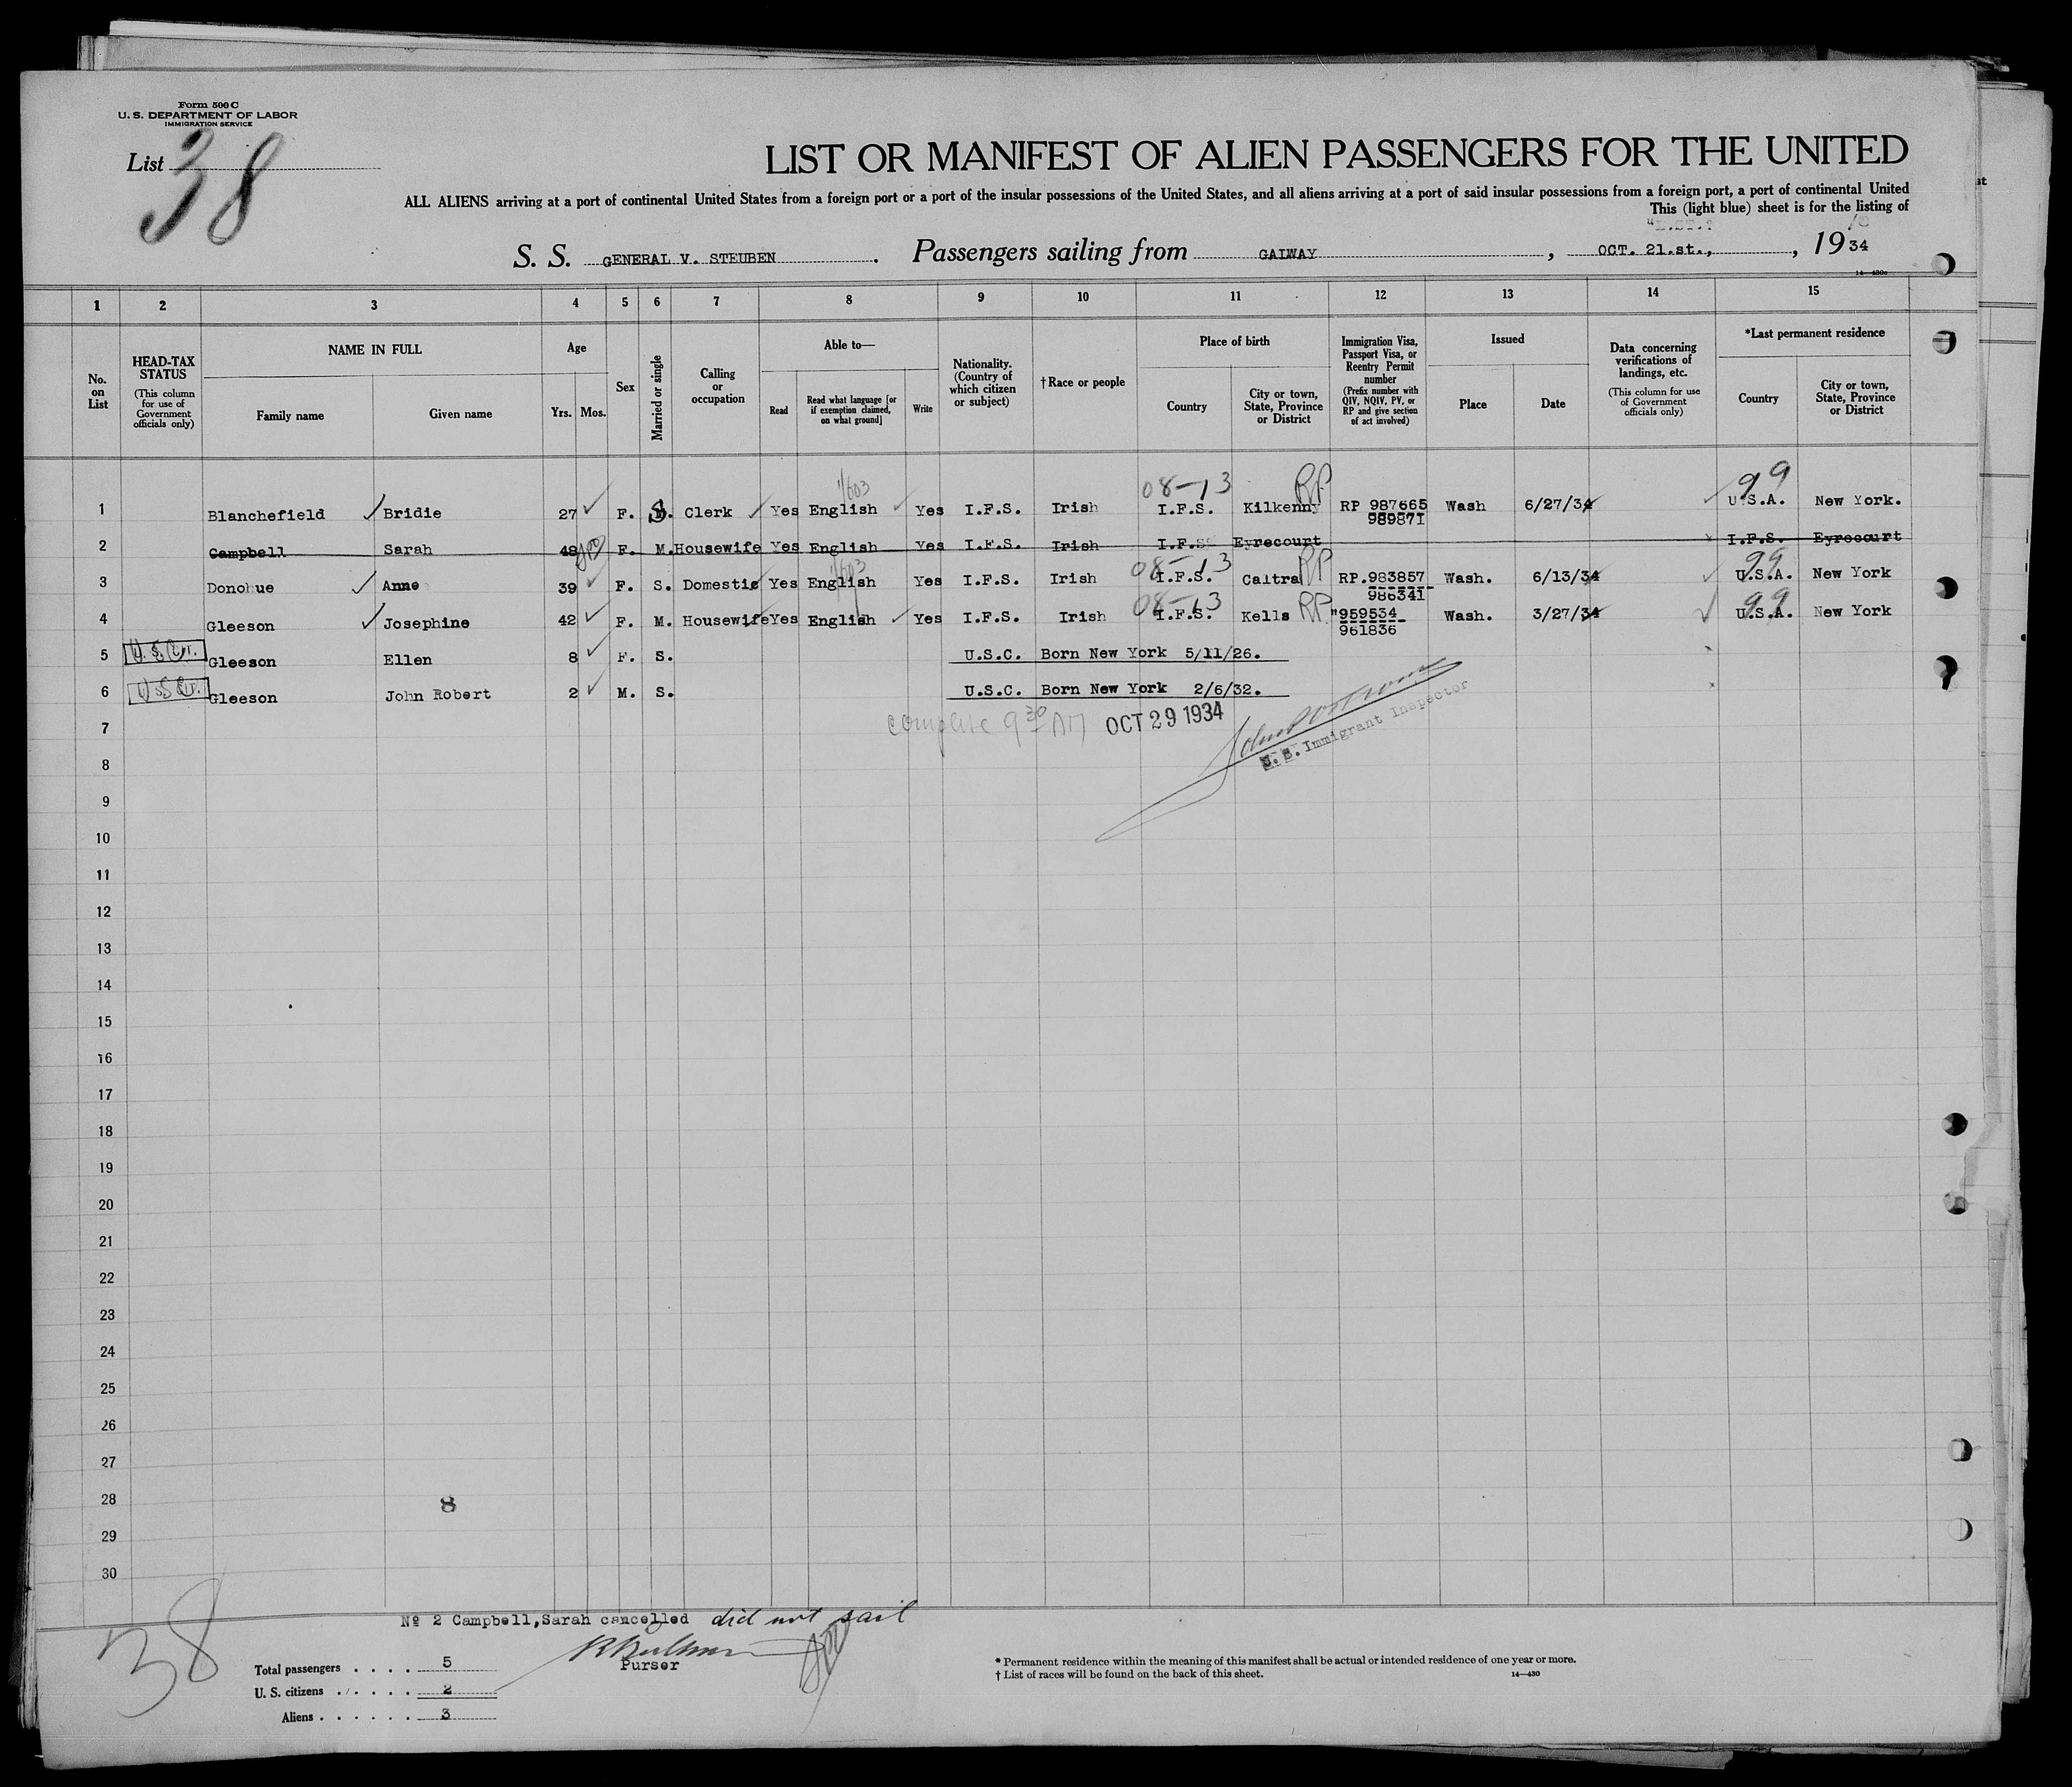 Form 500 C
U. S. DEPARTMENT OF LABOR
IMMIGRATION SERVICE
List 38
LIST OR MANIFEST OF ALIEN PASSENGERS FOR THE UNITED
ALL ALIENS arriving at a port of continental United States from a foreign port or a port of the insular possessions of the United States, and all aliens arriving at a port of said insular possessions from a foreign port, a port of continental United
This (light blue) sheet is for the listing of
S. S. GENERAL V. STEUBEN . Passengers sailing from GALWAY , OCT. 21.st., , 19 34
1 2 3 4 5 6 7 8 9 10 11 12 13 14 15
No. on List
HEAD-TAX STATUS (This column for use of Government officials only)
NAME IN FULL
Family name Given name
Age
Yrs. Mos.
Sex
Married or single
Calling or occupation
Able to—
Read Read what language [or if exemption claimed, on what ground] Write
Nationality. (Country of which citizen or subject)
†Race or people
Place of birth
Country City or town, State, Province or District
Immigration Visa, Passport Visa, or Reentry Permit number (Prefix number with QIV, NQIV, PV, or RP and give section of act involved)
Issued
Place Date
Data concerning verifications of landings, etc. (This column for use of Government officials only)
*Last permanent residence
Country City or town, State, Province or District
08-13 RP 99
1 Blanchefield Bridie 27 F. S. Clerk Yes English Yes I.F.S. Irish I.F.S. Kilkenny RP 987665 Wash 6/27/34 U.S.A. New York.
989871
2 Campbell Sarah 48 F. M. Housewife Yes English Yes I.F.S. Irish I.F.S. Eyrecourt I.F.S. Eyrecourt
08-13 RP 99
3 Donohue Anne 39 F. S. Domestic Yes English Yes I.F.S. Irish I.F.S. Caltra RP.983857 Wash. 6/13/34 U.S.A. New York
986341
08-13 RP 99
4 Gleeson Josephine 42 F. M. Housewife Yes English Yes I.F.S. Irish I.F.S. Kells "959534 Wash. 3/27/34 U.S.A. New York
961836
5 U.S. Cit. Gleeson Ellen 8 F. S. U.S.C. Born New York 5/11/26.
6 U.S. Cit. Gleeson John Robert 2 M. S. U.S.C. Born New York 2/6/32.
7 complete 9 30 AM OCT 29 1934
U. S. Immigrant Inspector
8
9
10
11
12
13
14
15
16
17
18
19
20
21
22
23
24
25
26
27
28 8
29
30
38
Nº 2 Campbell,Sarah cancelled did not sail
Purser
Total passengers . . . . 5
U. S. citizens . . . . . 2
Aliens . . . . . . 3
* Permanent residence within the meaning of this manifest shall be actual or intended residence of one year or more.
† List of races will be found on the back of this sheet. 14—430